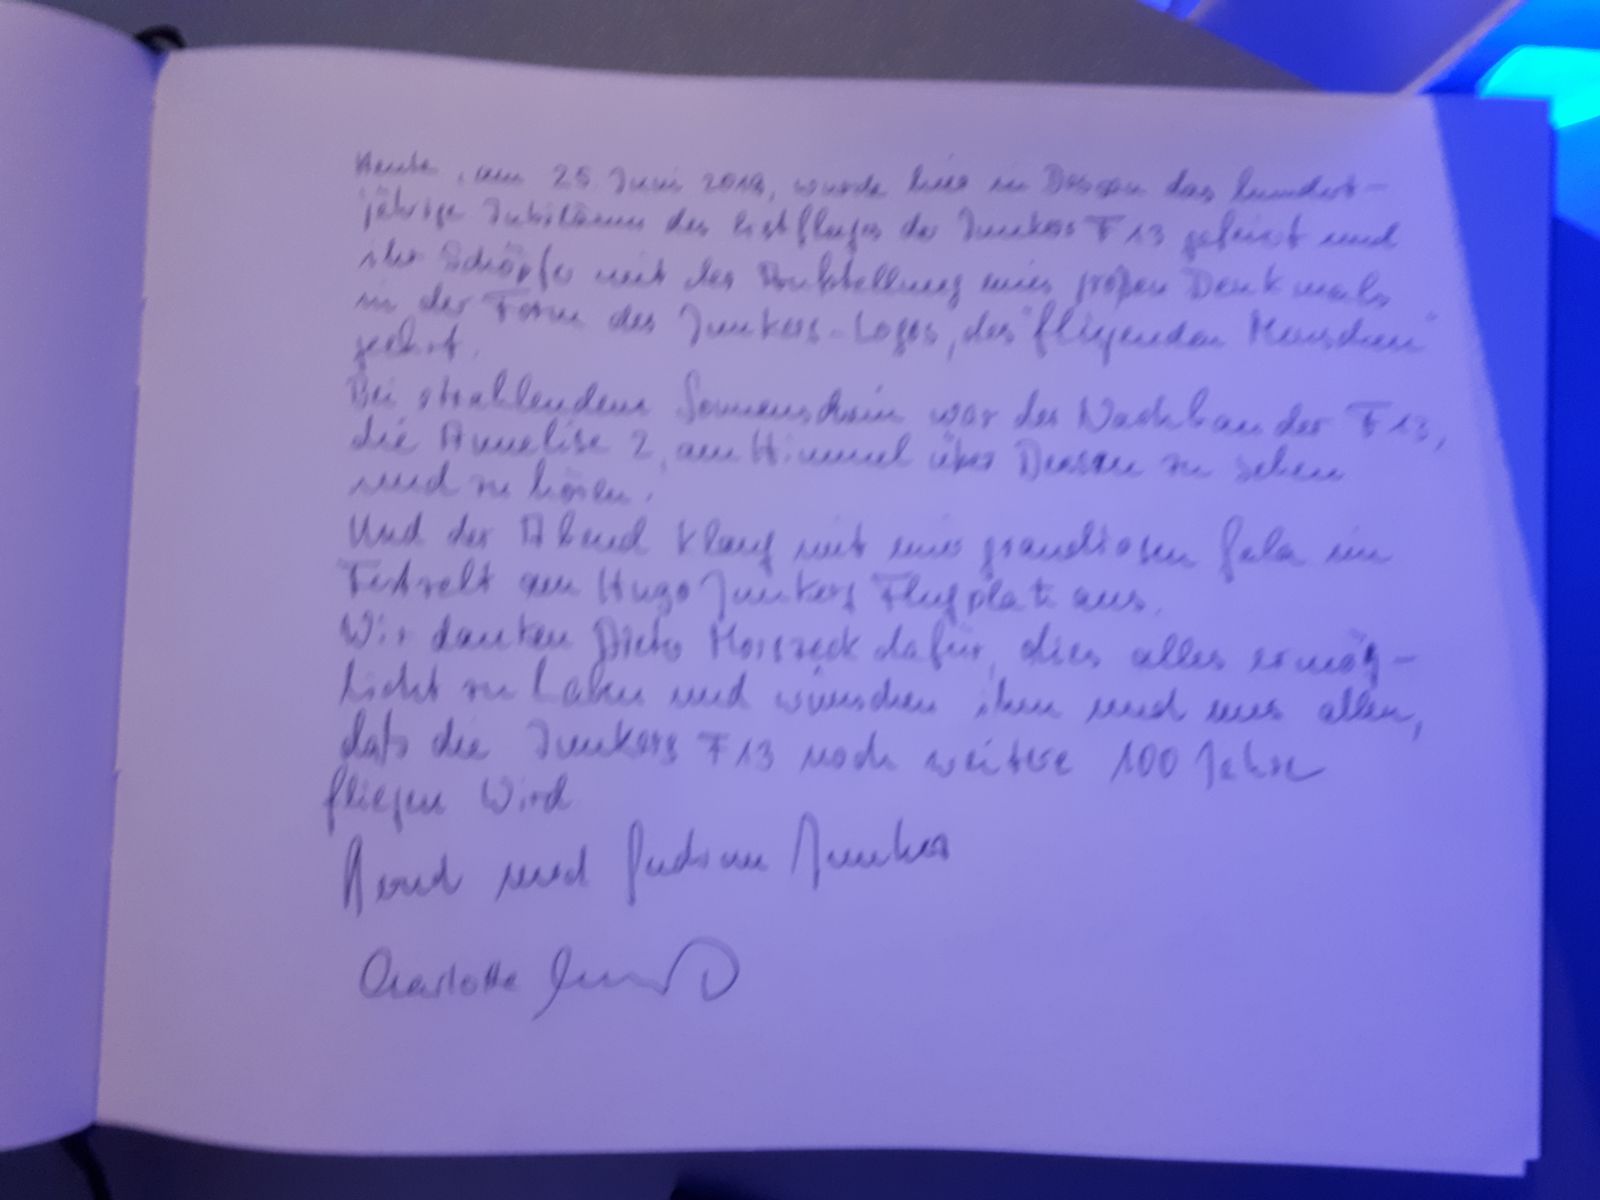 Heute, am 25 Juni 2019, wurde hier in Dessau das hundert-
jährige Jubiläum des Erstfluges der Junkers F13 gefeiert und
ihr Schöpfer mit der Aufstellung eines großen Denkmals
in der Form des Junkers-Logos, des "fliegenden Menschen"
geehrt.
Bei strahlendem Sonnenschein war der Nachbau der F13,
die Annelise 2, am Himmel über Dessau zu sehen
und zu hören.
Und der Abend klang mit einer grandiosen Gala im
Festzelt am Hugo Junkers Flugplatz aus.
Wir danken Dieter Morszeck dafür, dies alles ermög-
licht zu haben und wünschen ihm und uns allen,
daß die Junkers F13 noch weitere 100 Jahre
fliegen wird
Bernd und Gudrun Junkers
Charlotte